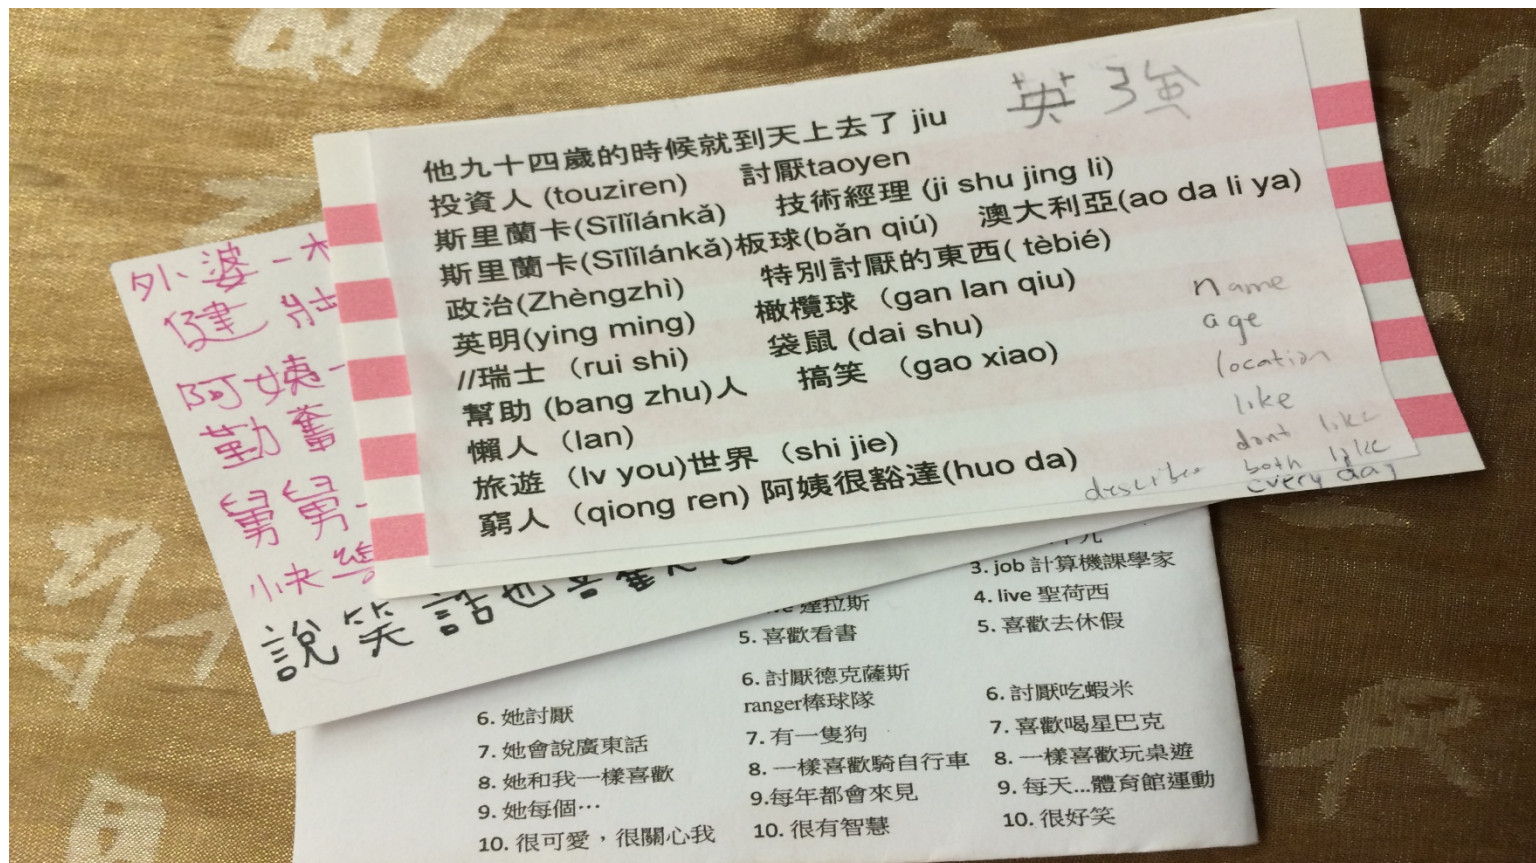 英強
他九十四歲的時候就到天上去了 jiu
投資人 (touziren) 討厭taoyen
斯里蘭卡(Sīlǐlánkǎ) 技術經理 (ji shu jing li)
斯里蘭卡(Sīlǐlánkǎ)板球(bǎn qiú) 澳大利亞(ao da li ya)
政治(Zhèngzhì) 特別討厭的東西( tèbié)
英明(ying ming) 橄欖球 （gan lan qiu)
//瑞士 （rui shi) 袋鼠 (dai shu)
幫助 (bang zhu)人 搞笑 （gao xiao)
懶人 （lan)
旅遊 （lv you)世界 （shi jie)
窮人 （qiong ren) 阿姨很豁達(huo da)
name
age
location
like
dont like
both like
describe every day
外婆-
健壯
阿姨-
勤奮
舅舅-
說笑話也喜歡
3. job 計算機課學家
達拉斯
4. live 聖荷西
5. 喜歡看書
5. 喜歡去休假
6. 她討厭
7. 她會說廣東話
8. 她和我一樣喜歡
9. 她每個…
10. 很可愛，很關心我
6. 討厭德克薩斯
ranger棒球隊
7. 有一隻狗
8. 一樣喜歡騎自行車
9.每年都會來見
10. 很有智慧
6. 討厭吃蝦米
7. 喜歡喝星巴克
8. 一樣喜歡玩桌遊
9. 每天...體育館運動
10. 很好笑